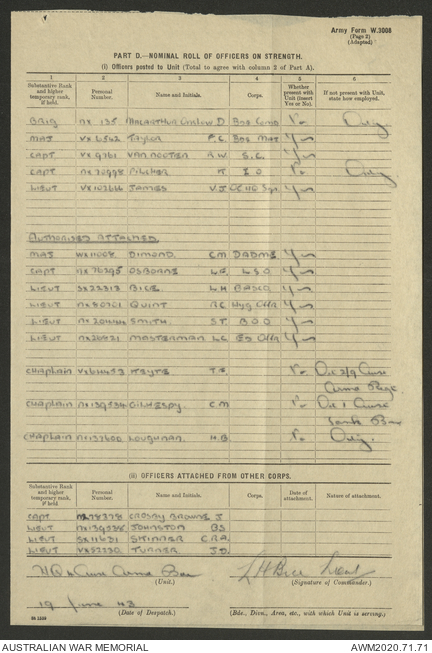 Army Form W.3008
(Page 2)
(Adapted)
PART D.—NOMINAL ROLL OF OFFICERS ON STRENGTH.
(i) Officers posted to Unit (Total to agree with column 2 of Part A).
1 2 3 4 5 6
Substantive Rank and higher temporary rank, if held. Personal Number. Name and Initials. Corps. Whether present with Unit (Insert Yes or No). If not present with Unit, state how employed.
BRIG NX 135 MACARTHUR ONSLOW D. Bde Comd No
MAJ TAYLOR Bde Maj Yes
CAPT VX 9761 VAN NOOTEN Yes
CAPT NX 70998 PILCHER I O No
LIEUT JAMES V.J. Yes
AUTHORISED ATTACHED
MAJ WX11008 DIMOND. C M DADME Yes
CAPT NX 76295 OSBORNE L.F. L S O. Yes
LIEUT SX 22313 BICE L H Yes
LIEUT NX 80701 QUINT R C Hyg Offr Yes
LIEUT SMITH. S T B.O.O Yes
LIEUT MASTERMAN L G Yes
CHAPLAIN T.F. No
Regt
CHAPLAIN NX139534 GILLESPY. C M No
Tank Bn
CHAPLAIN NX137600 LOUGHNAN. H.B. No
(ii) OFFICERS ATTACHED FROM OTHER CORPS.
Substantive Rank and higher temporary rank, if held. Personal Number. Name and Initials. Corps. Date of attachment. Nature of attachment.
CAPT CROSBY BROWNE J
LIEUT NX139538 JOHNSTON B S
LIEUT SX11631 SKINNER C.R.A.
LIEUT VX52330 TURNER J.D.
(Unit.)
L H Bice Lieut
(Signature of Commander.)
19 June 43
(Date of Despatch.)
(Bde., Divn., Area, etc., with which Unit is serving.)
AUSTRALIAN WAR MEMORIAL
AWM2020.71.71